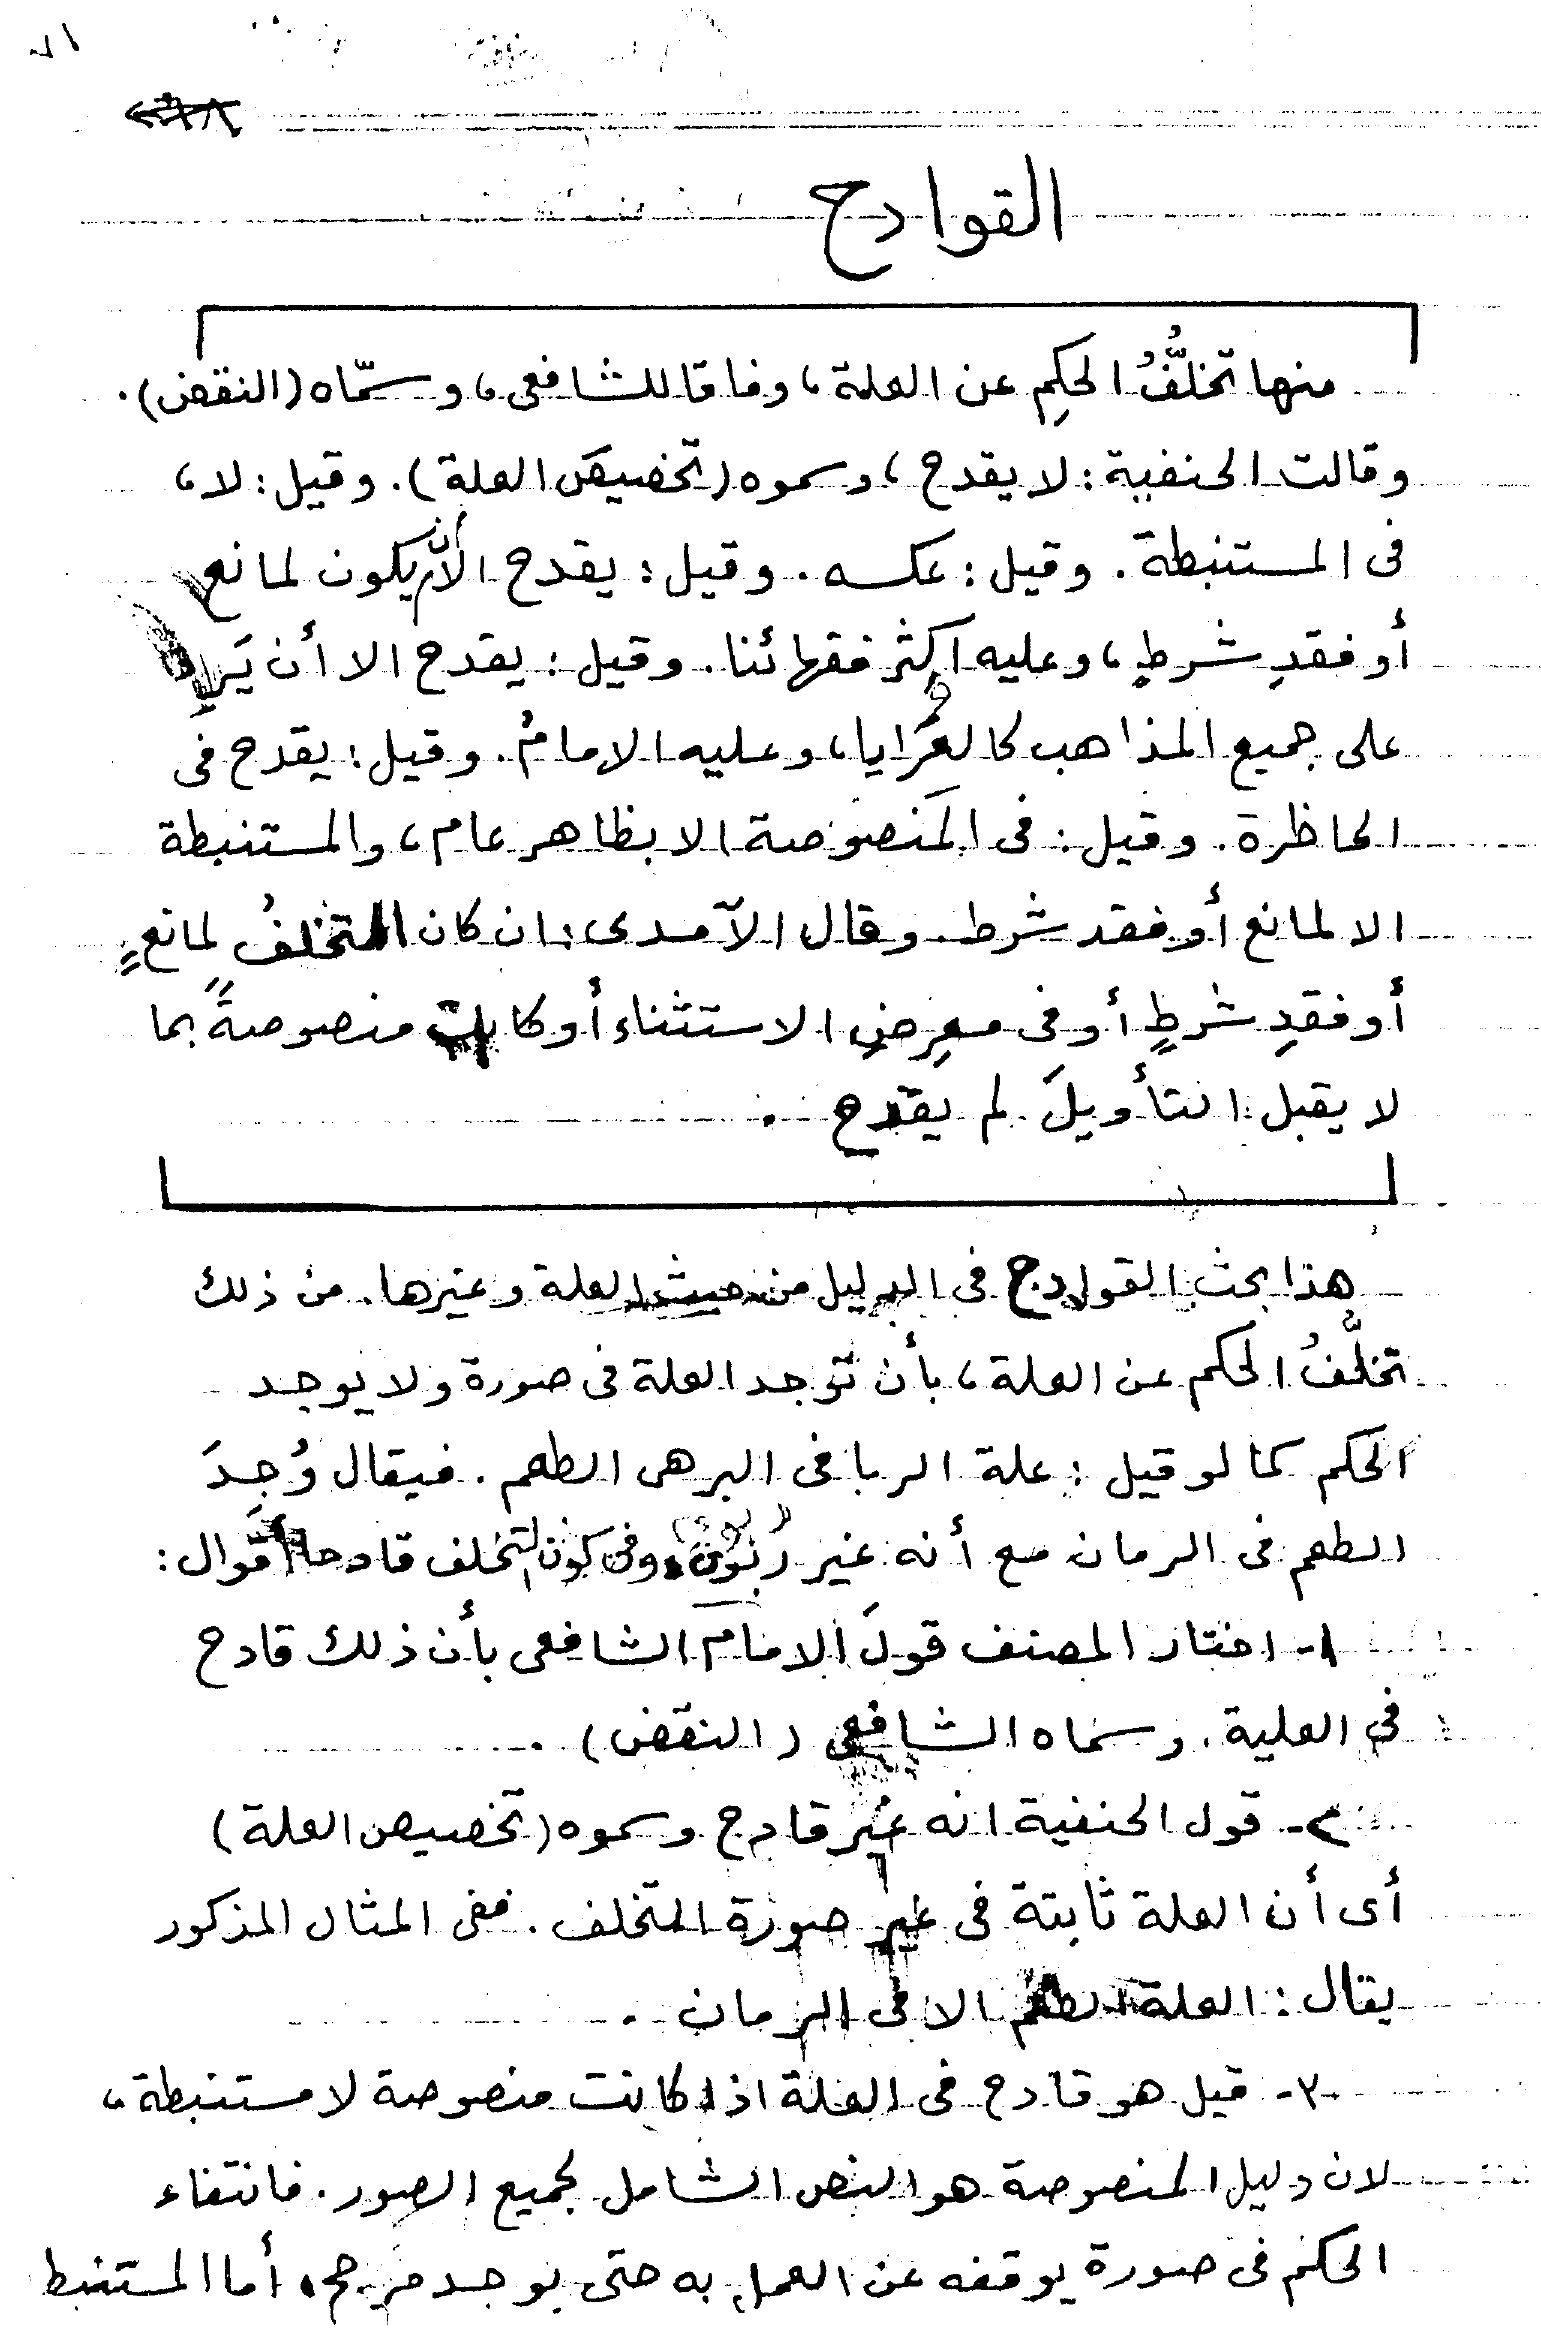 القوادح
منها تخلُّفُ الحكمِ عن العلة، وفاقا للشافعى، وسمّاه (النقض).
وقالت الحنفية: لا يقدح، وسموه (تخصيصَ العلة). وقيل: لا،
فى المستنبطة. وقيل: عكسه. وقيل: يقدح الا أن يكون لمانع
أو فقدِ شرطٍ، وعليه اكثر فقهائنا. وقيل: يقدح الا أن يَرِد
على جميع المذاهب كالعَرَايا، وعليه الامامُ. وقيل: يقدح فى
الحاظرة. وقيل: فى المنصوصة الا بظاهر عام، والمستنبطة
الا لمانع أو فقد شرط. وقال الآمدى: ان كان التخلفُ لمانعٍ
أو فقدِ شرطٍ أو فى معرِضِ الاستثناء أو كانت منصوصةً بما
لا يقبل التأويلَ لم يقدح.
هذا بحث القوادح فى الدليل من حيث العلة وغيرها. من ذلك
تخلُّفُ الحكم عن العلة، بأن توجد العلة فى صورة ولا يوجد
الحكم كما لو قيل: علة الربا فى البر هى الطعم. فيقال وُجِدَ
الطعم فى الرمان مع أنه غير ربوى. وفى كون التخلف قادحا أقوال:
١- اختار المصنف قولَ الامام الشافعى بأن ذلك قادح
فى العلية. وسماه الشافعى (النقض).
٢- قول الحنفية انه غير قادح وسموه (تخصيص العلة)
أى أن العلة ثابتة فى غير صورة التخلف. ففى المثال المذكور
يقال: العلة الطعم الا فى الرمان.
٣- قيل هو قادح فى العلة اذا كانت منصوصة لا مستنبطة،
لان دليل المنصوصة هو النص الشامل لجميع الصور. فانتفاء
الحكم فى صورة يوقفه عن العمل به حتى يوجد مرجح، أما المستنبط